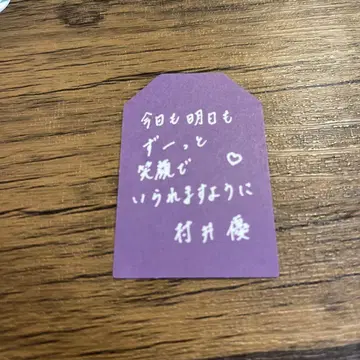 今日も明日も
ずーっと
笑顔で♡
いられますように
村井優